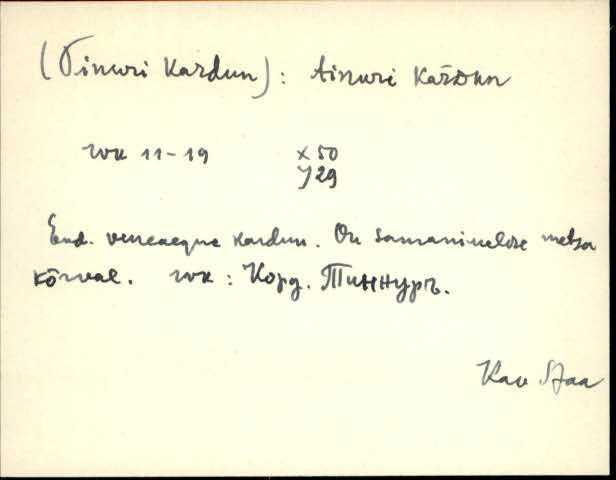 (Tinuri Kardun): tinuri kàrdun
wk 11-19 x 50
y 29
End. veneaegne kardun. On samanimelise metsa
kõrval. wk: Корд. Тиннуръ.
Kao Staa